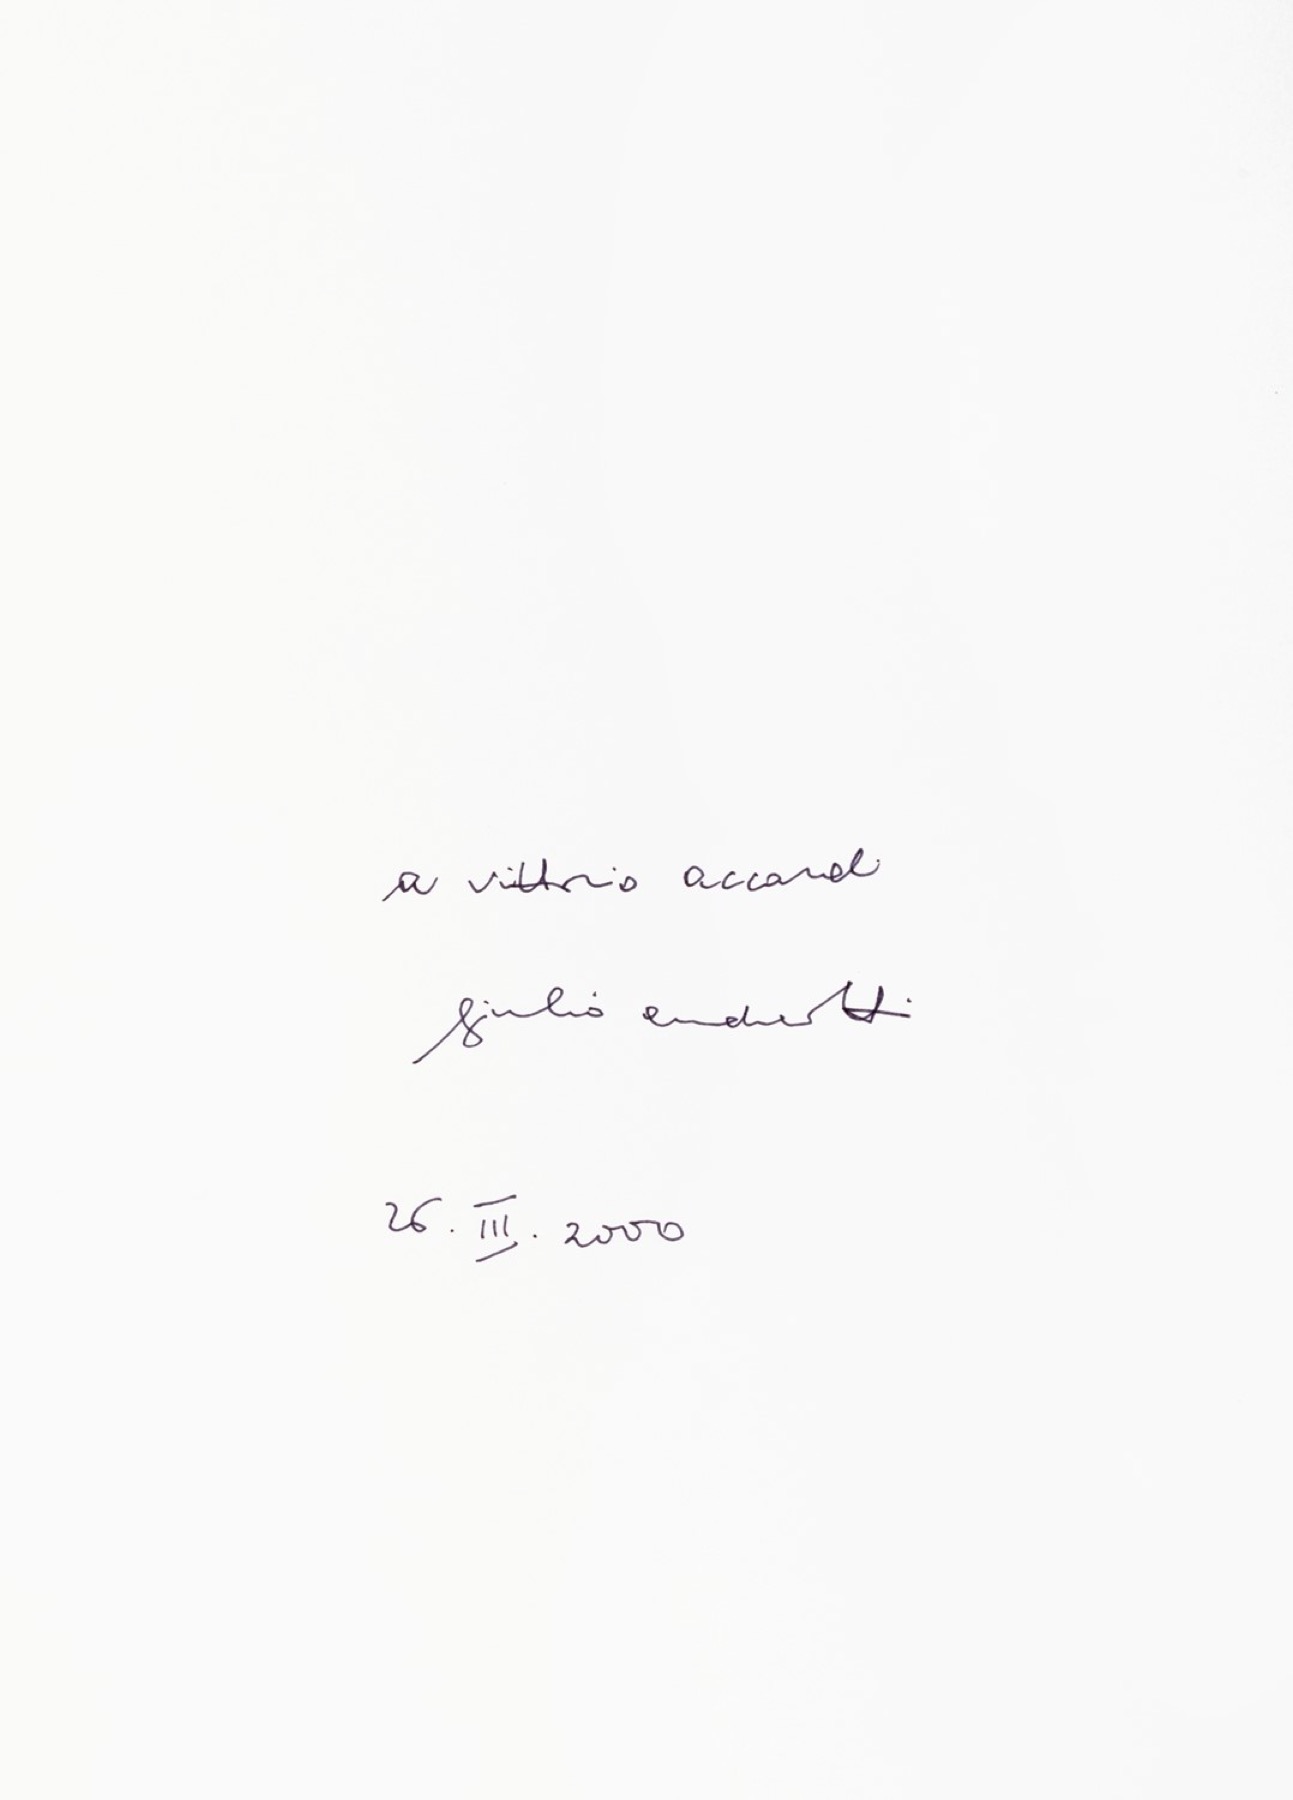 a vittorio accardi
giulio andreotti
26. III. 2000